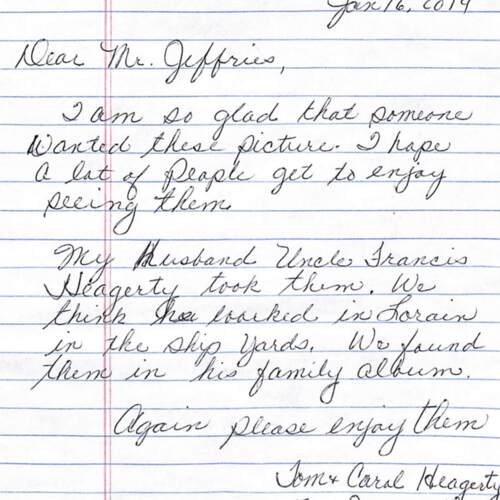 Jan 16, 2019
Dear Mr. Jeffries,
I am so glad that someone
wanted these picture. I hope
a lot of people get to enjoy
seeing them.
My Husband Uncle Francis
Heagerty took them. We
think he worked in Lorain
in the ship yards. We found
them in his family album.
Again please enjoy them
Tom + Carol Heagerty